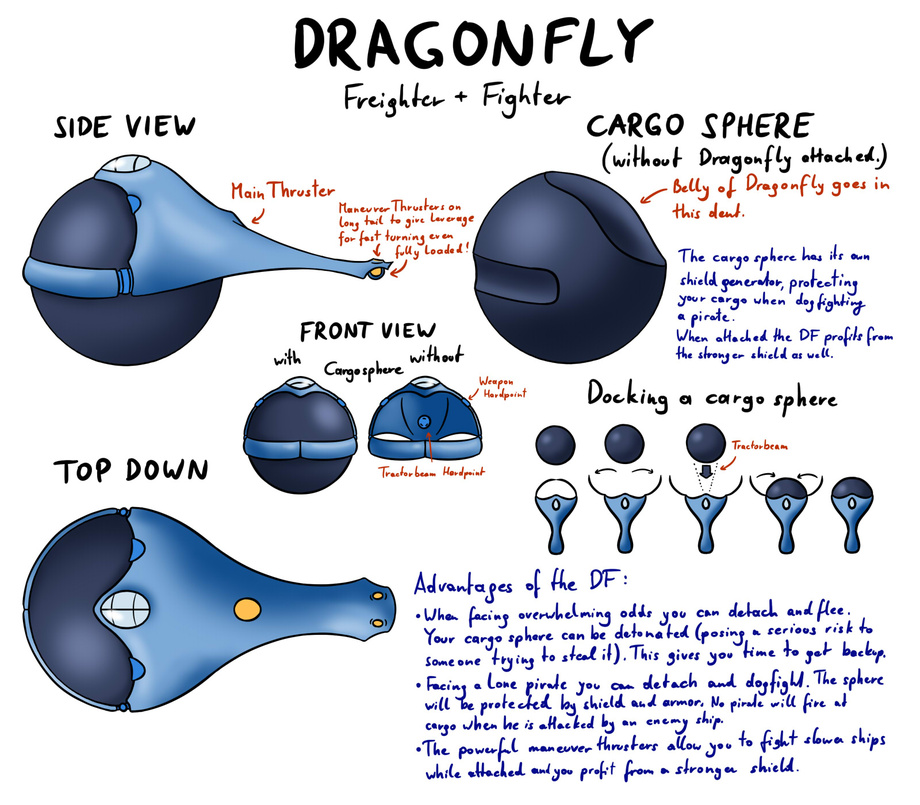 DRAGONFLY
Freighter + Fighter
SIDE VIEW
Main Thruster
Maneuver Thrusters on
long tail to give leverage
for fast turning even
fully Loaded!
CARGO SPHERE
(without Dragonfly attached.)
Belly of Dragonfly goes in
this dent.
The cargo sphere has its own
shield generator, protecting
your cargo when dogfighting
a pirate.
When attached the DF profits from
the stronger shield as well.
FRONT VIEW
with Cargosphere without
Weapon
Hardpoint
Tractorbeam Hardpoint
Docking a cargo sphere
Tractorbeam
TOP DOWN
Advantages of the DF:
• When facing overwhelming odds you can detach and flee.
Your cargo sphere can be detonated (posing a serious risk to
someone trying to steal it). This gives you time to get backup.
• Facing a Lone pirate you can detach and dogfight. The sphere
will be protected by shield and armor. No pirate will fire at
cargo when he is attacked by an enemy ship.
• The powerful maneuver thrusters allow you to fight slower ships
while attached and you profit from a stronger shield.